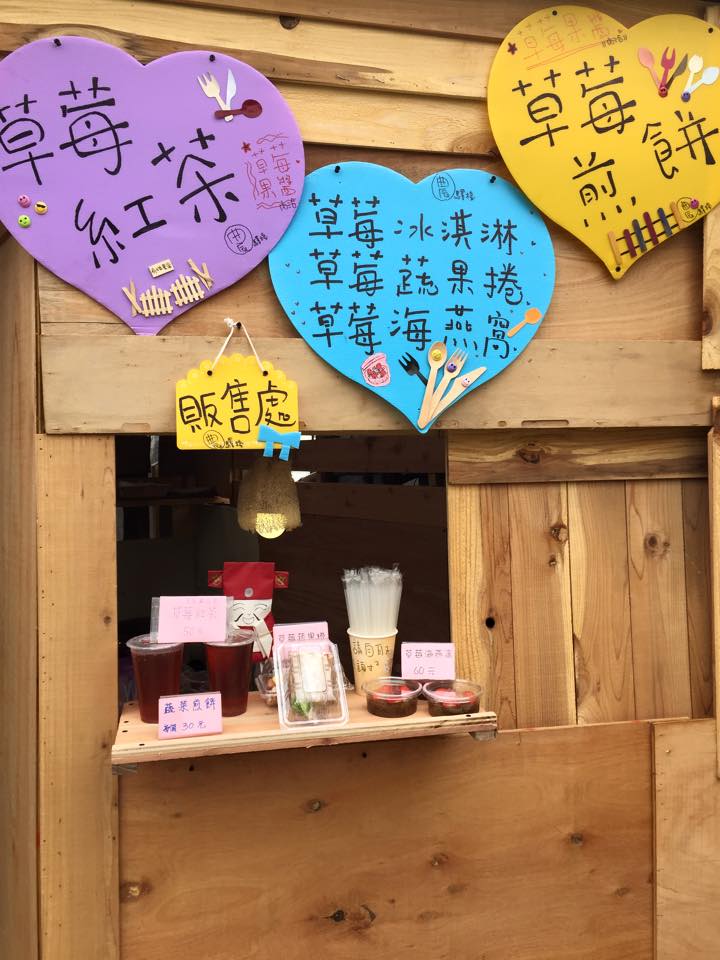 草莓
紅茶
草莓
果醬
草莓果醬
草莓
煎餅
草莓冰淇淋
草莓蔬果捲
草莓海燕窩
販售處
草莓紅茶
50元
草莓蔬果捲
草莓海燕窩
60元
蔬菜煎餅
30元